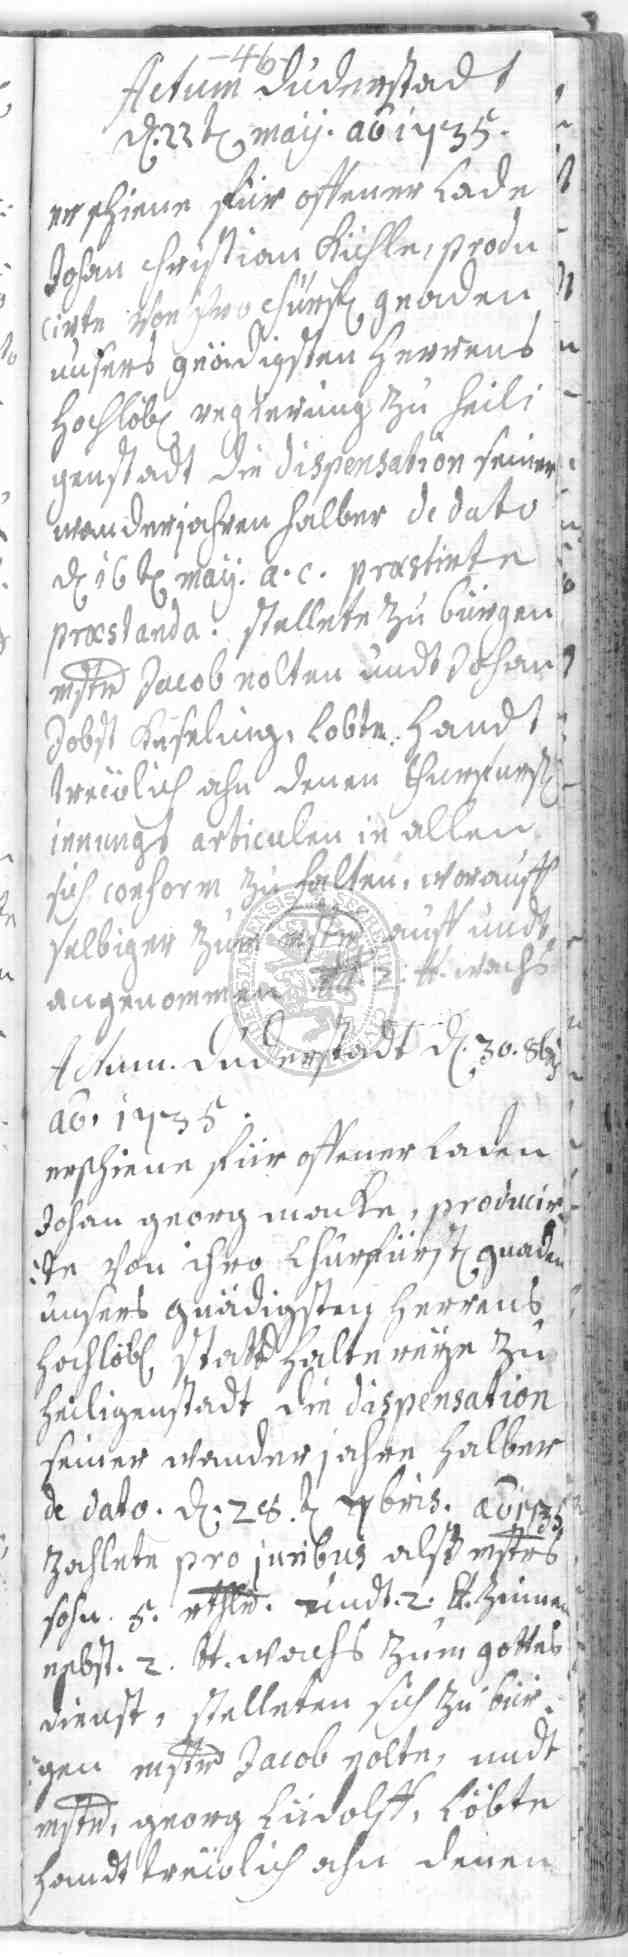 -46-
Actum Duderstadt
d. 22 t. maij. ao 1735.
erschiene für offener Lade
Johan christian Kuchle, produ
cirte von Ihro Chürf. gnaden
unsers gnädigsten Herrens
Hochlöbl. regierung zu Heili
genstadt die dispensation seiner
wanderjahren halber de dato
d. 16 t. maij. a. c. præstirte
præstanda. stellete zu bürgen
mstr Jacob nolten undt Johan
Jobst, lobte Handt
treülich ahn denen Churfürstl
innungs articulen in allen
sich conform zu halten, worauff
selbiger zum mstr auff undt
angenommen 2. tt. wachs
Actum. Duderstadt d. 30. 8bris
ao. 1735.
erschiene für offener Laden
Johan georg macke, producir
te von ihro Churfürstl gnaden
unsers gnädigsten Herrens
Hochlöbl. Statthaltereye zu
Heiligenstadt die dispensation
seiner wander jahre halber
de dato. d. 28. t. 7bris. ao 1735
zahlete pro juribus alß mstrs
sohn. 5. rthlr. undt. 2. tt. zinnen
nebst. 2. tt. wachs zum gottes
dienst, stelleten sich zu bür
gen mstr Jacob nolte, undt
mstr. georg Lüdolff, Löbte
handt treülich ahn denen